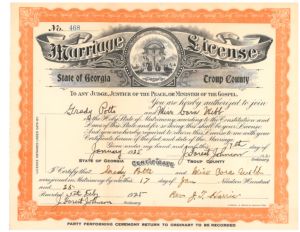 No. 468
Marriage License
State of Georgia Troup County
TO ANY JUDGE, JUSTICE OF THE PEACE, OR MINISTER OF THE GOSPEL.
You are hereby authorized to join
Grady Potts and Miss Dora Webb
in the Holy State of Matrimony according to the Constitution and
Laws of this State and for so doing this shall be your sufficient License.
And you are hereby required to return this License to me with your
Certificate hereon of the fact and date of the Marriage.
Given under my hand and seal this 17th day of
January 1925
STATE OF GEORGIA Certificate TROUP COUNTY
I Certify that Grady Potts and Miss Dora Webb
were joined in Matrimony by me this 17 day of Jan Nineteen Hundred
and 25
Recorded Feb 1925
PARTY PERFORMING CEREMONY RETURN TO ORDINARY TO BE RECORDED